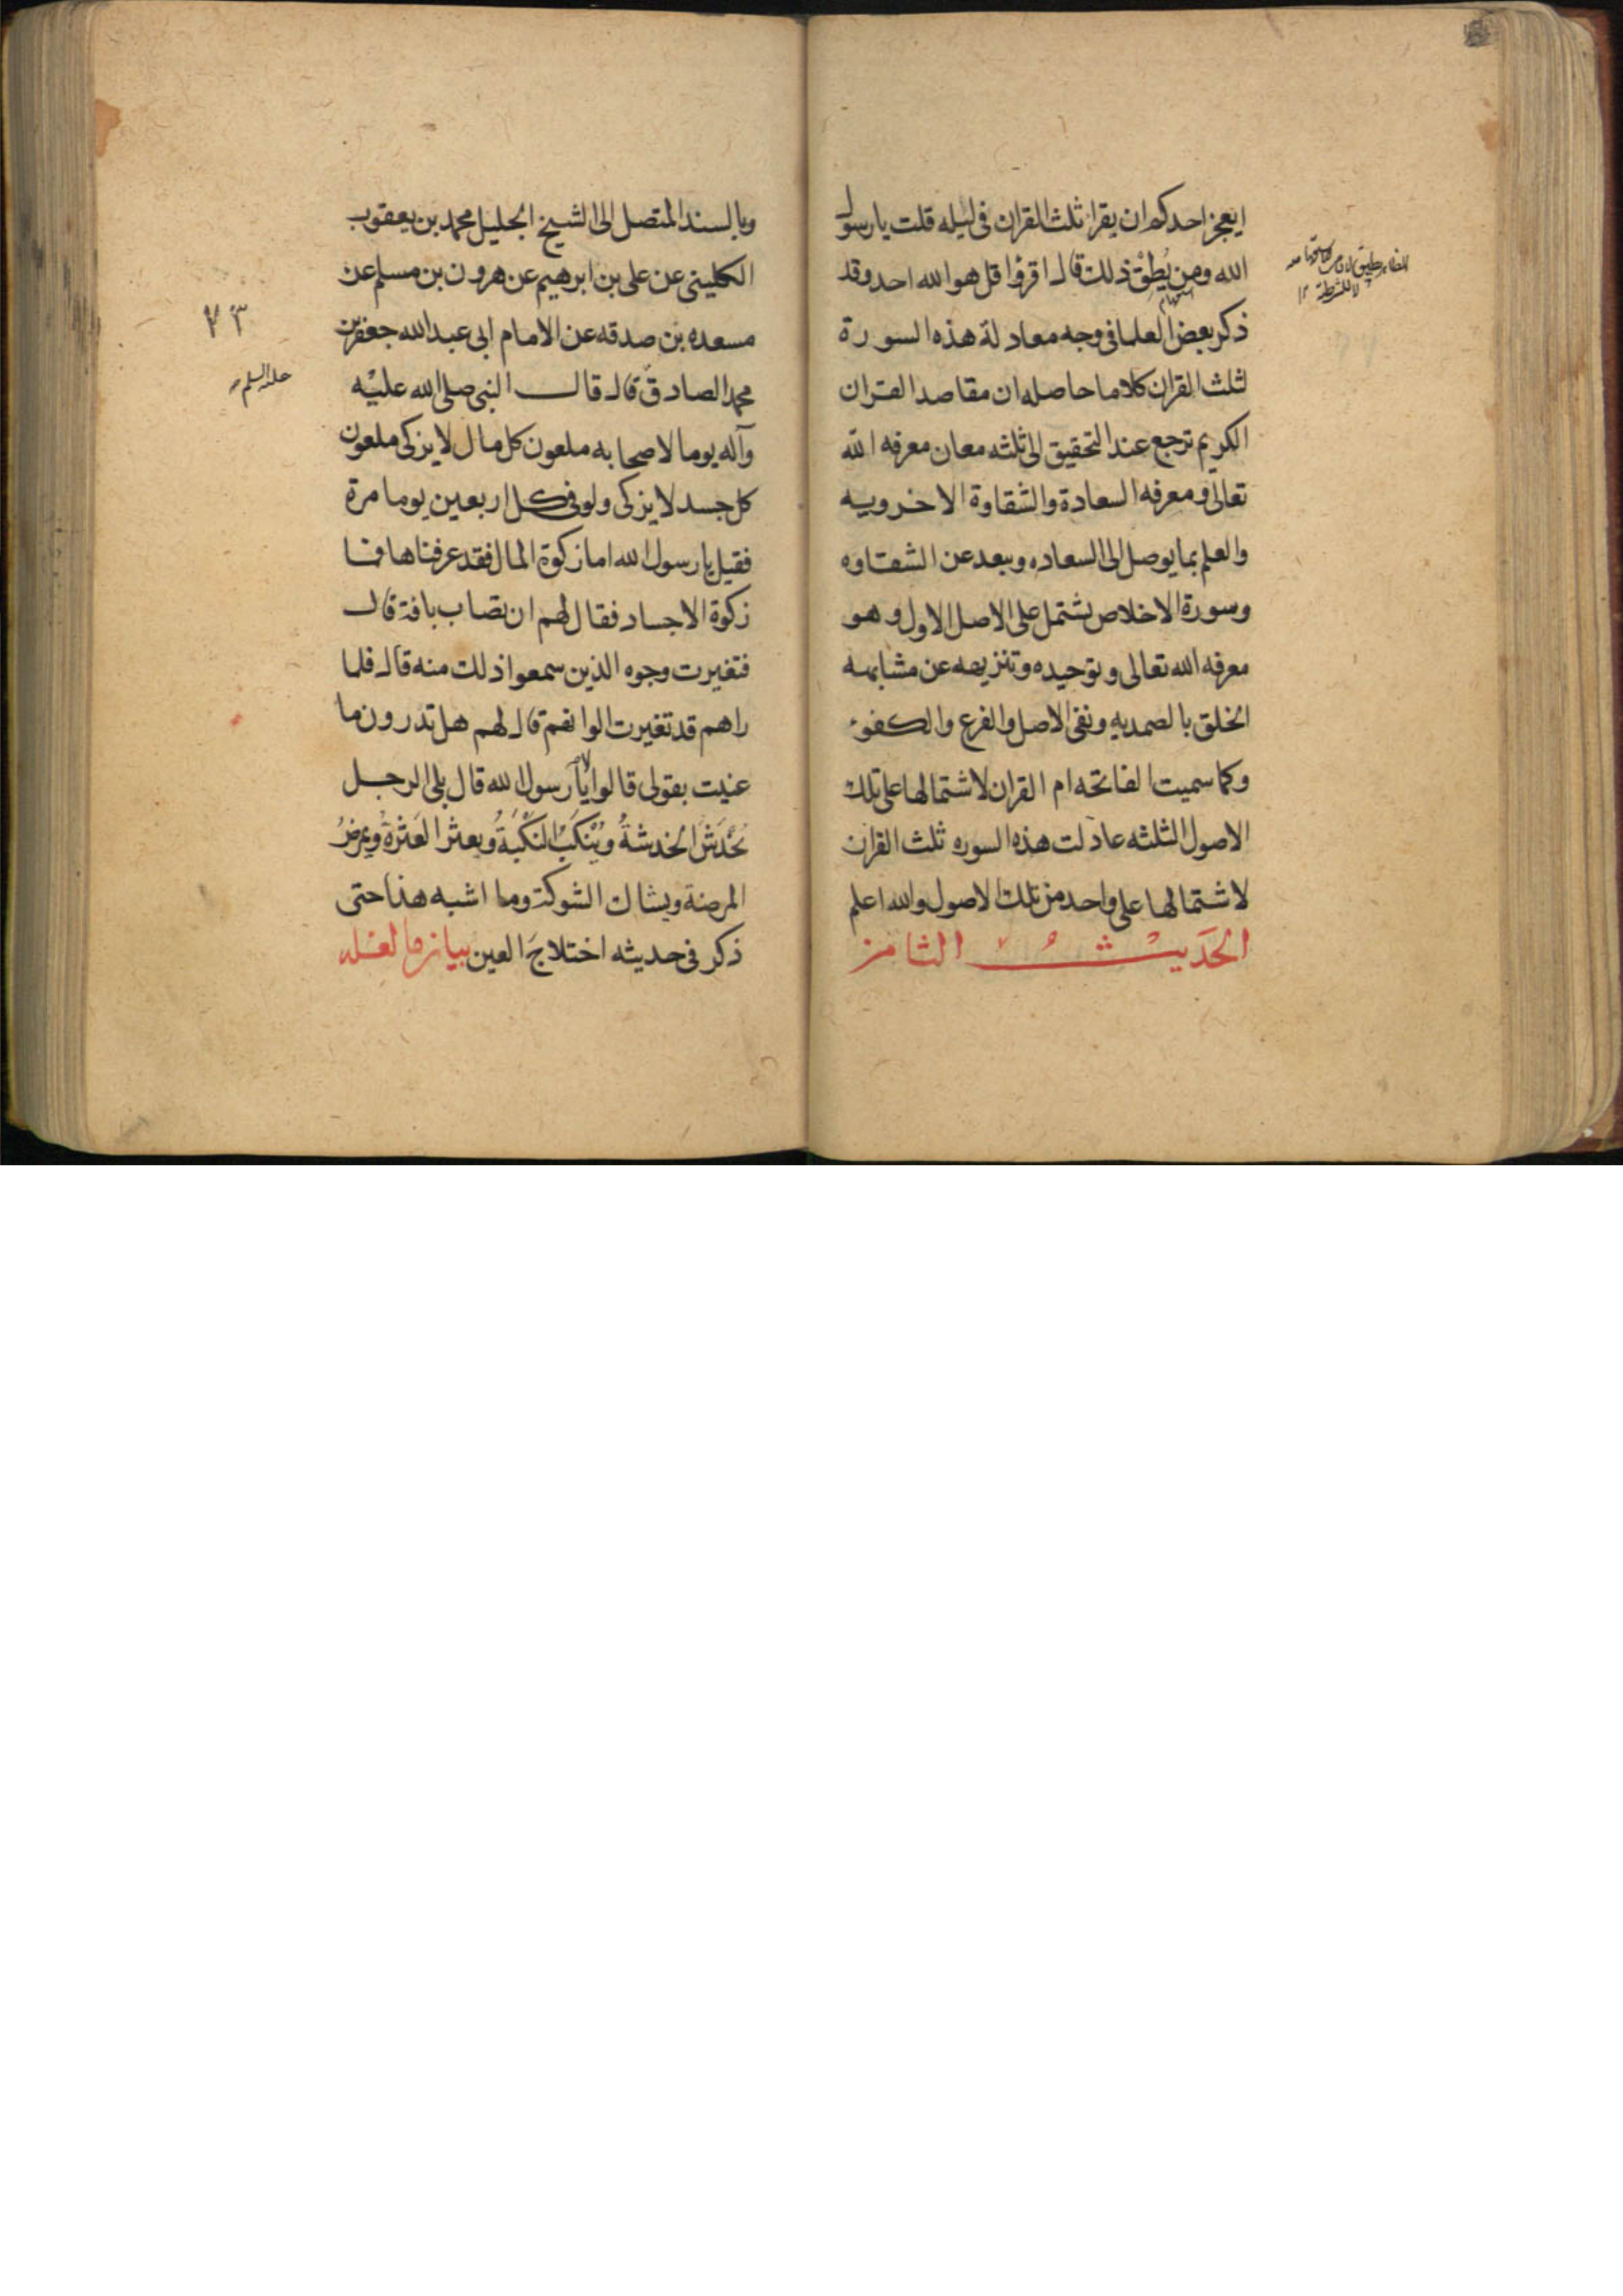 ايعجز احدكم ان يقرا ثلث القران فى ليله قلت يا رسول
الله ومن يُطِقْ ذلك قال اقرؤا قل هو الله احد وقد
ذكر بعض العلما فى وجه معادلة هذه السورة
لثلث القران كلاما حاصله ان مقاصد القران
الكريم ترجع عند التحقيق الى ثلثه معان معرفه الله
تعالى و معرفه السعادة والشقاوة الاخرويه
والعلم بما يوصل الى السعاده ويبعد عن الشقاوه
وسورة الاخلاص تشتمل على الاصل الاول و هو
معرفه الله تعالى و توحيده و تنزيهه عن مشابهه
الخلق بالصمديه و نفى الاصل والفرع والكفوء
وكما سميت الفاتحه ام القران لاشتمالها على تلك
الاصول الثلثه عادلت هذه السوره ثلث القران
لاشتمالها على واحد من تلك الاصول والله اعلم
الحَديْثُ الثامن
وبالسند المتصل الى الشيخ الجليل محمد بن يعقوب
الكلينى عن على بن ابرهيم عن هرون بن مسلم عن
مسعده بن صدقه عن الامام ابى عبد الله جعفر بن
محمد الصادق قال قال النبى صلى الله عليه
وآله يوما لاصحابه ملعون كل مال لا يزكى ملعون
كل جسد لا يزكى ولو فى كل اربعين يوما مرة
فقيل يا رسول الله اما زكوة المال فقد عرفناها فما
زكوة الاجساد فقال لهم ان تصاب بافة قال
فتغيرت وجوه الذين سمعوا ذلك منه قال فلما
راهم قد تغيرت الوانهم قال لهم هل تدرون ما
عنيت بقولى قالوا لا يا رسول الله قال بلى الرجل
يُخْدَشُ الخدشةُ ويُنْكَبُ النَكْبَةُ ويعثر العَثْرةُ ويمرضُ
المرضة ويشاك الشوكة وما اشبه هذا حتى
ذكر فى حديثه اختلاجَ العين بيان ما لعله
٧٣
عليه السلم